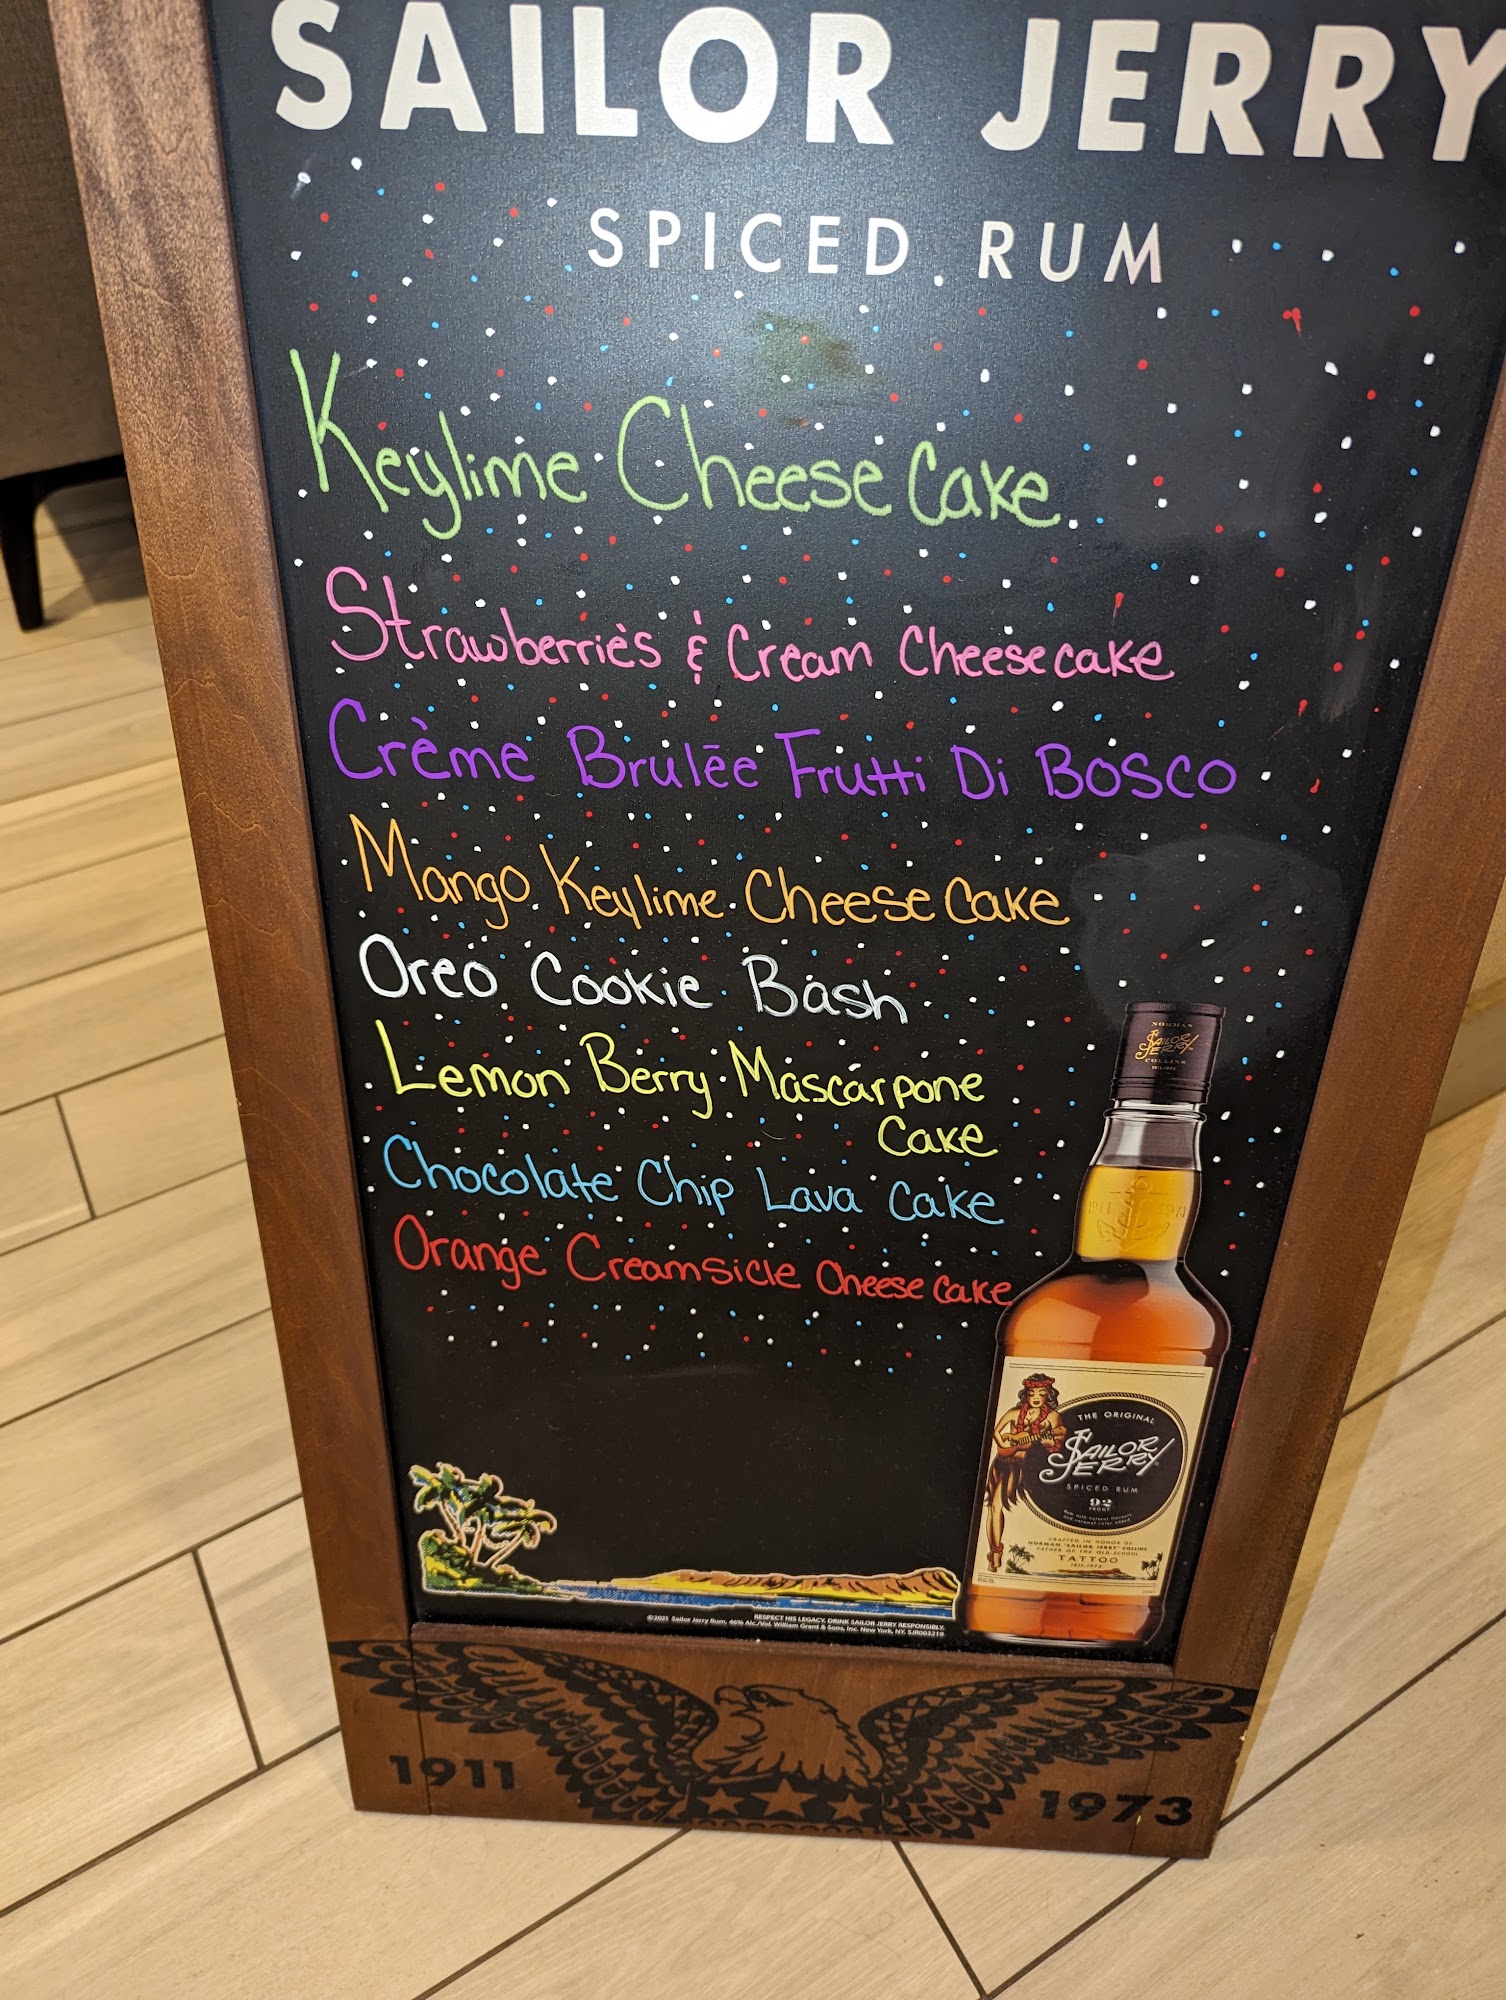 SAILOR JERRY
SPICED RUM
Keylime Cheese Cake
Strawberries & Cream Cheesecake
Crème Brulēe Frutti Di Bosco
Mango Keylime Cheese Cake
Oreo Cookie Bash
Lemon Berry Mascarpone
Cake
Chocolate Chip Lava Cake
Orange Creamsicle Cheese Cake
NORMAN
SAILOR
JERRY
COLLINS
1911 1973
THE ORIGINAL
SAILOR
JERRY
SPICED RUM
92
PROOF
CRAFTED IN HONOR OF
NORMAN "SAILOR JERRY" COLLINS
FATHER OF THE OLD-SCHOOL
TATTOO
1911-1973
RESPECT HIS LEGACY. DRINK SAILOR JERRY RESPONSIBLY.
©2021 Sailor Jerry Rum, 46% Alc./Vol. William Grant & Sons, Inc. New York, NY. SJR003219
1911
1973